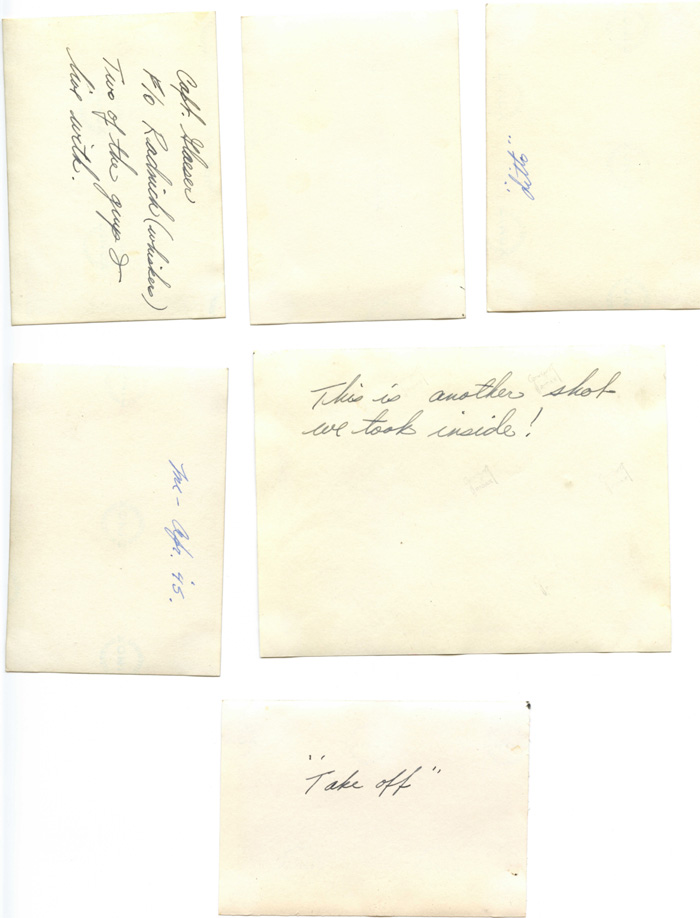 Capt. Glaeser
F/O Radnick (whiskers)
Two of the guys I
live with.
Me - Apr. '45.
This is another shot
we took inside!
"Take off"